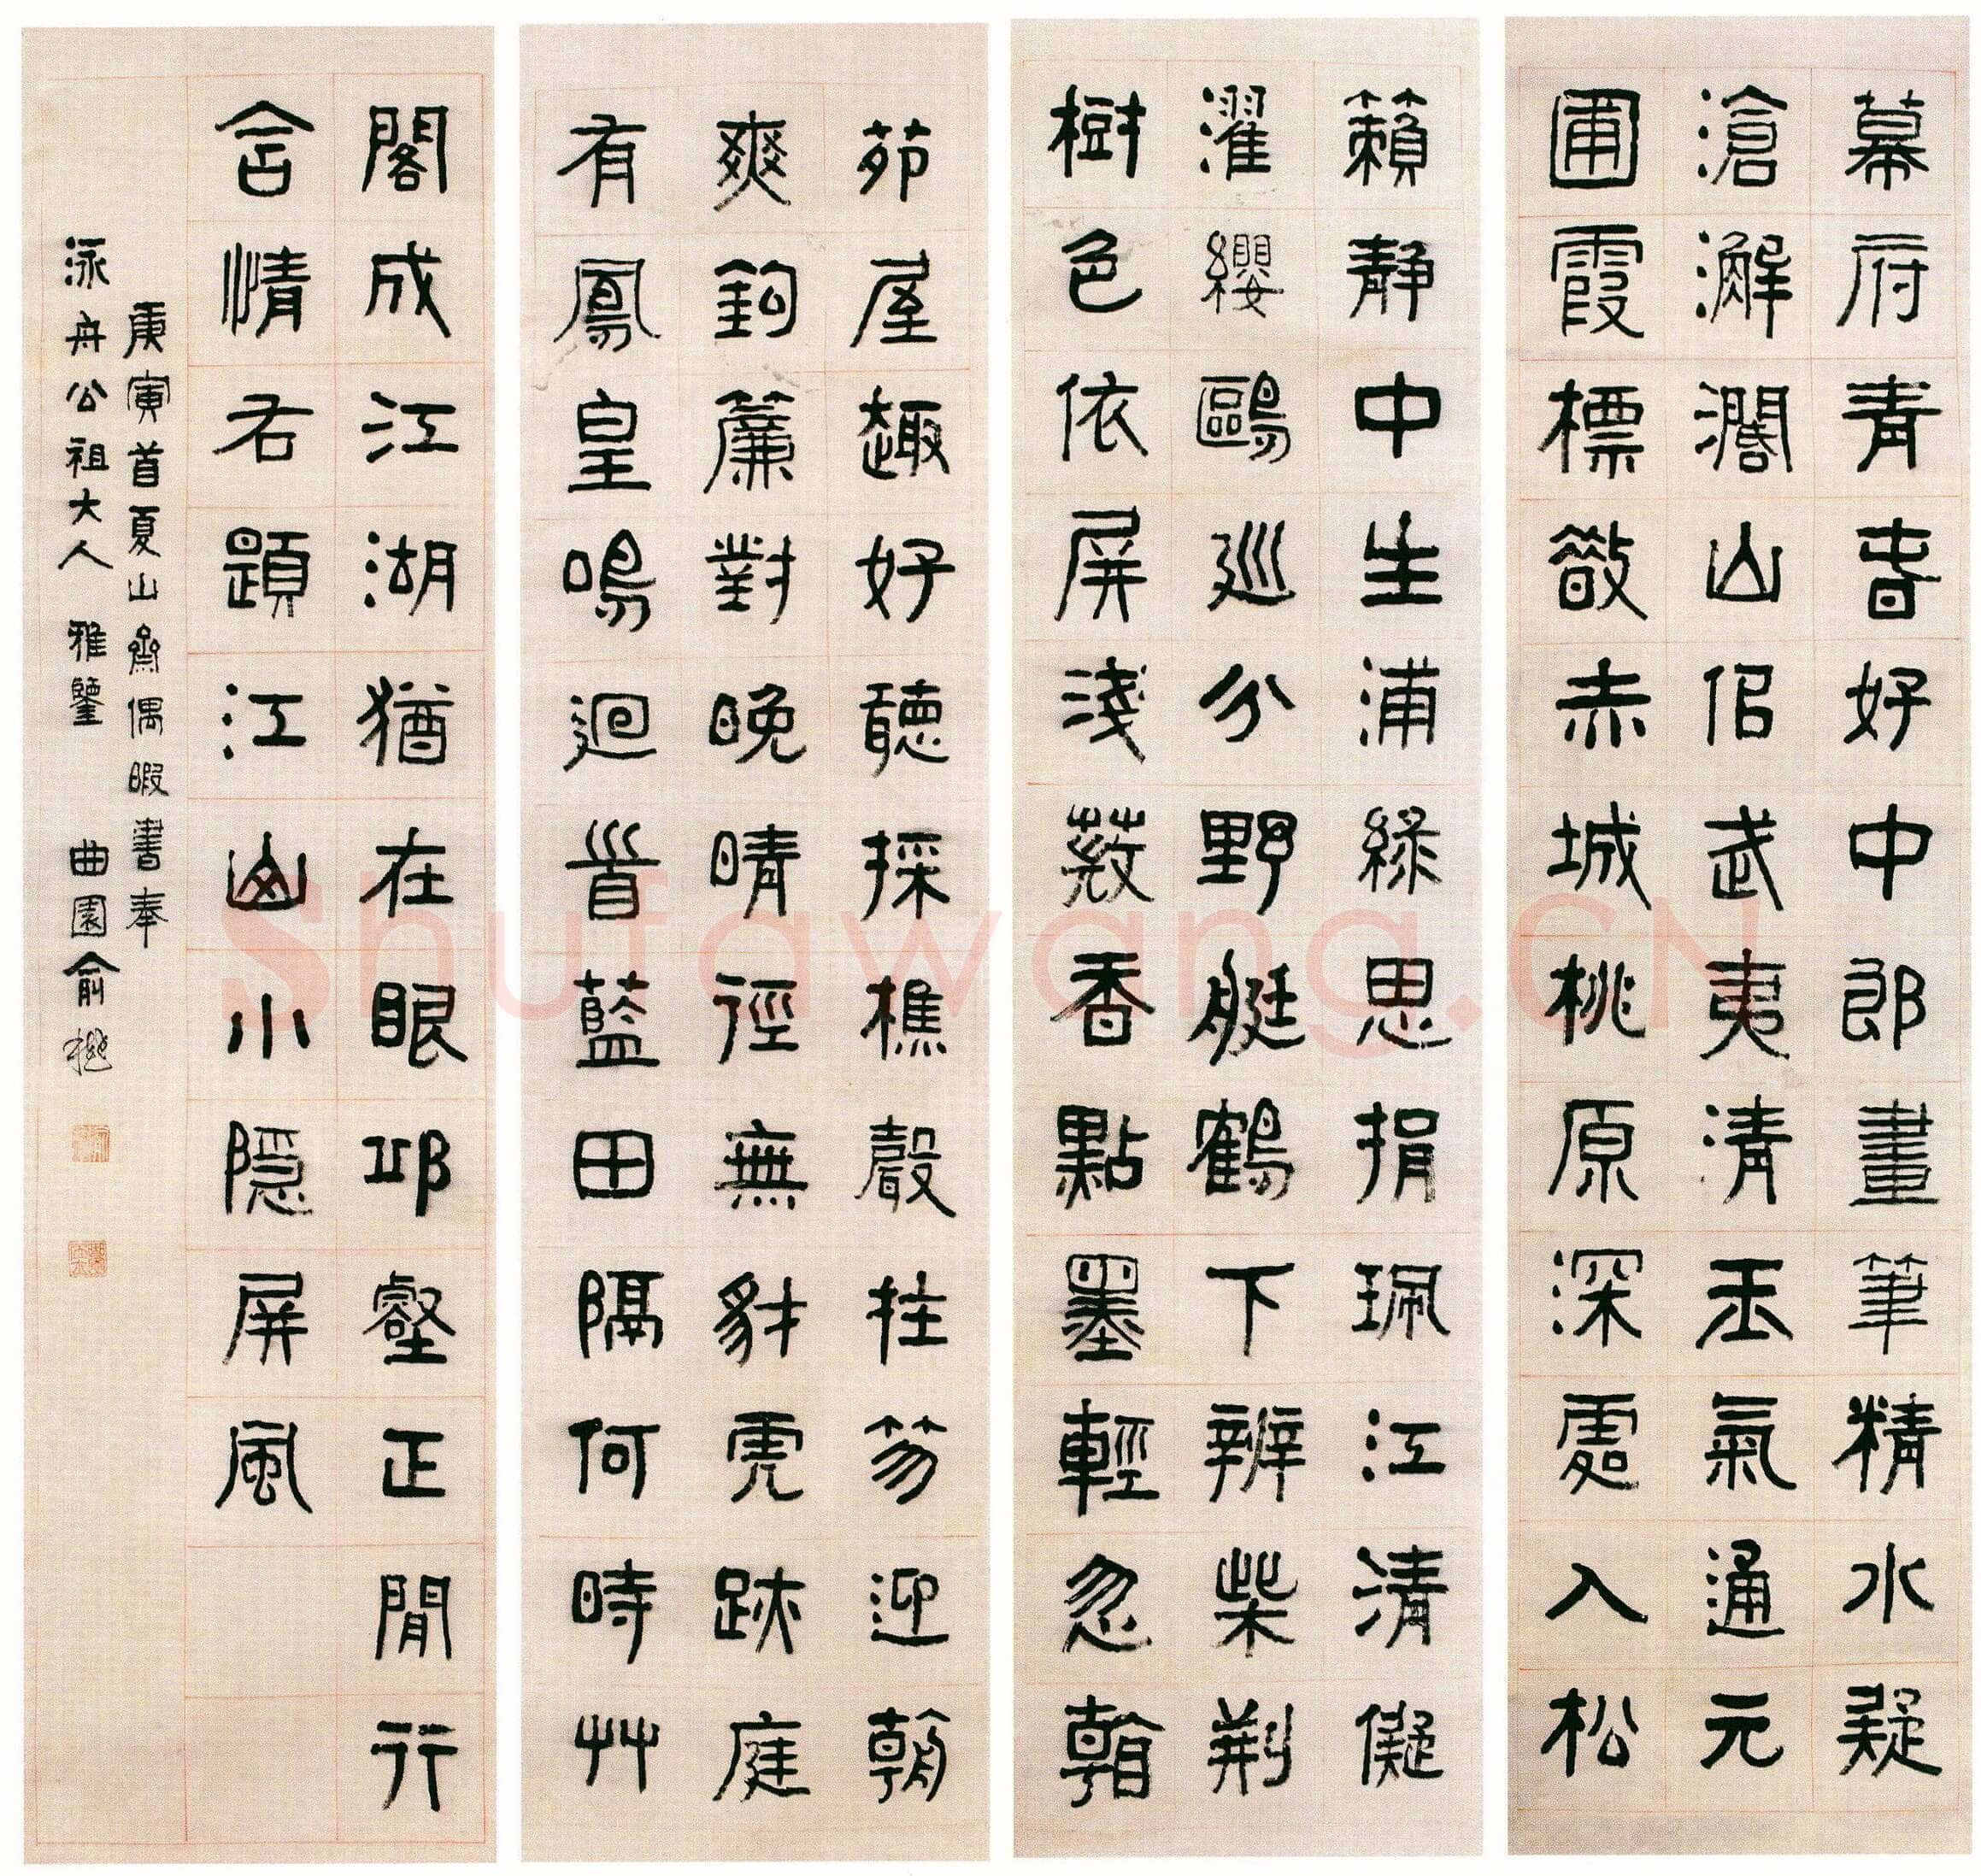 幕府青春好中郎畫筆精水疑
滄澥濶山侶武夷清玉氣通元
圃霞標敚赤城桃原深處入松
籟靜中生浦綠思捐珮江清儗
濯纓鷗巡分野艇鶴下辨柴荆
樹色依屏淺蘐香點墨輕忽翰
茆屋趣好聽採樵聲拄笏迎朝
爽鉤簾對晚晴徑無豺虎跡庭
有鳳皇鳴迴首藍田隔何時艸
閣成江湖猶在眼邱壑正閒行
言情右題江山小隱屏風
庚寅首夏山齋偶暇書奉
泳舟公祖大人雅鑒 曲園俞樾
Shufawang.CN